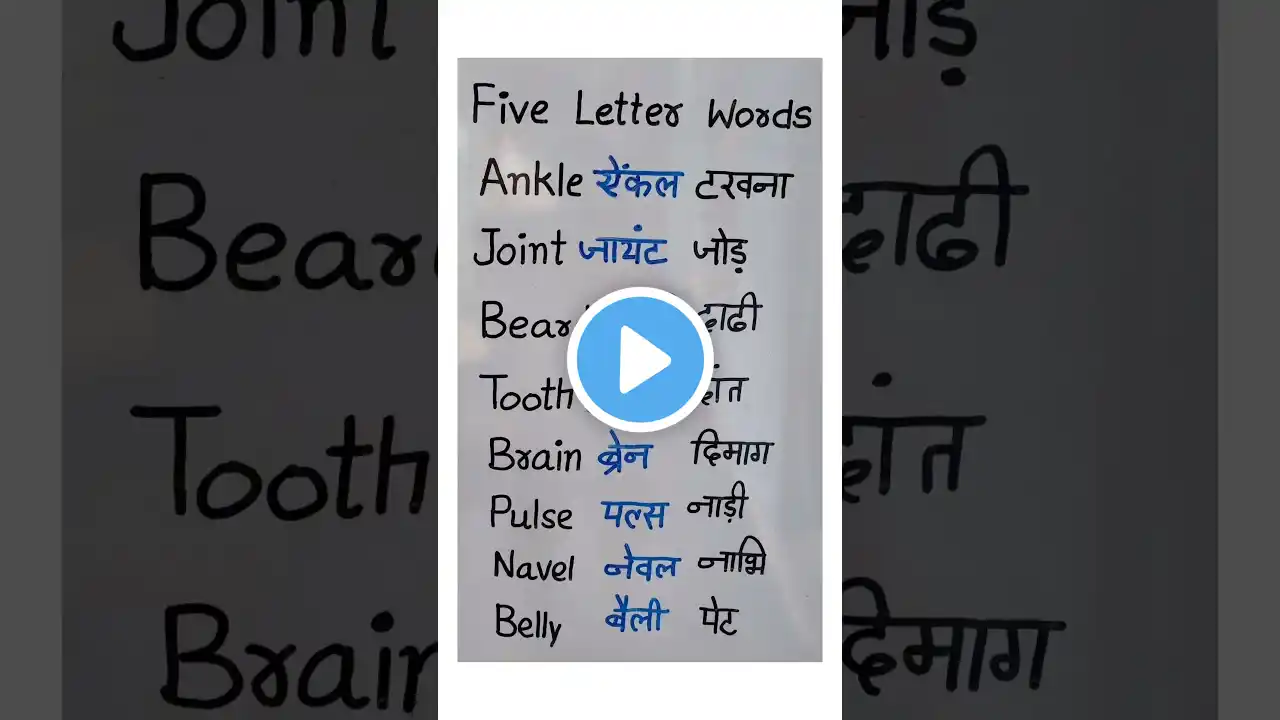 Five Letter Words
Ankle ऐंकल टखना
Joint जायंट जोड़
Beard दाढी
Tooth दांत
Brain ब्रेन दिमाग
Pulse पल्स नाड़ी
Navel नेवल नाभि
Belly बैली पेट